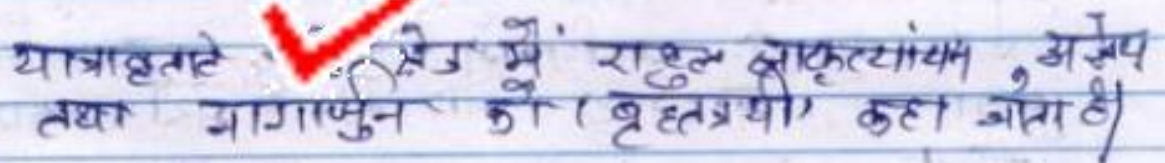 यात्रावृतांत क्षेत्र में राहुल सांकृत्यांयन , अज्ञेय
तथा नागार्जुन को 'वृहतत्रयी' कहा जाता है।